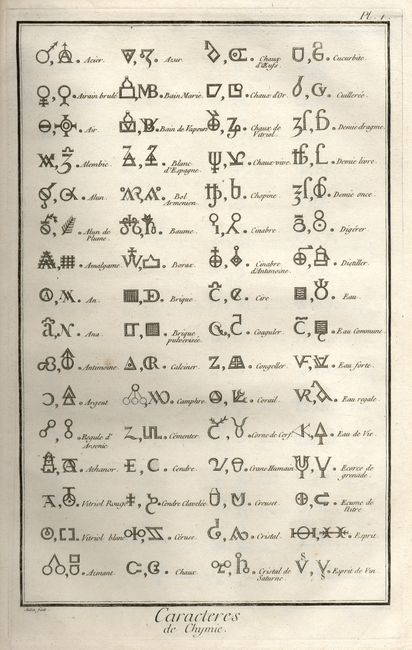 Pl. 1.
Acier. Azur. Chaux d'Œufs. Cucurbite.
Airain brulé. Bain Marie. Chaux d'Or. Cuillerée.
Air. Bain de Vapeurs. Chaux de Vitriol. Demie dragme.
Alembic. Blanc d'Espagne. Chaux vive. Demie livre.
Alun. Bol Armenien. Chopine. Demie once.
Alun de Plume. Baume. Cinabre. Digérer.
Amalgame. Borax. Cinabre d'Antimoine. Distiller.
An. Brique. Cire. Eau.
Ana. Brique pulvérisée. Coaguler. Eau Commune.
Antimoine. Calciner. Congeller. Eau forte.
Argent. Camphre. Corail. Eau regale.
Regule d'Arsenic. Cémenter. Corne de Cerf. Eau de Vie.
Athanor. Cendre. Crane Humain. Ecorce de grenade.
Vitriol Rouge. Cendre Clavelée. Creuset. Ecume de Nitre.
Vitriol blanc. Céruse. Cristal. Esprit.
Aimant. Chaux. Cristal de Saturne. Esprit de Vin.
Caracteres
de Chymie.